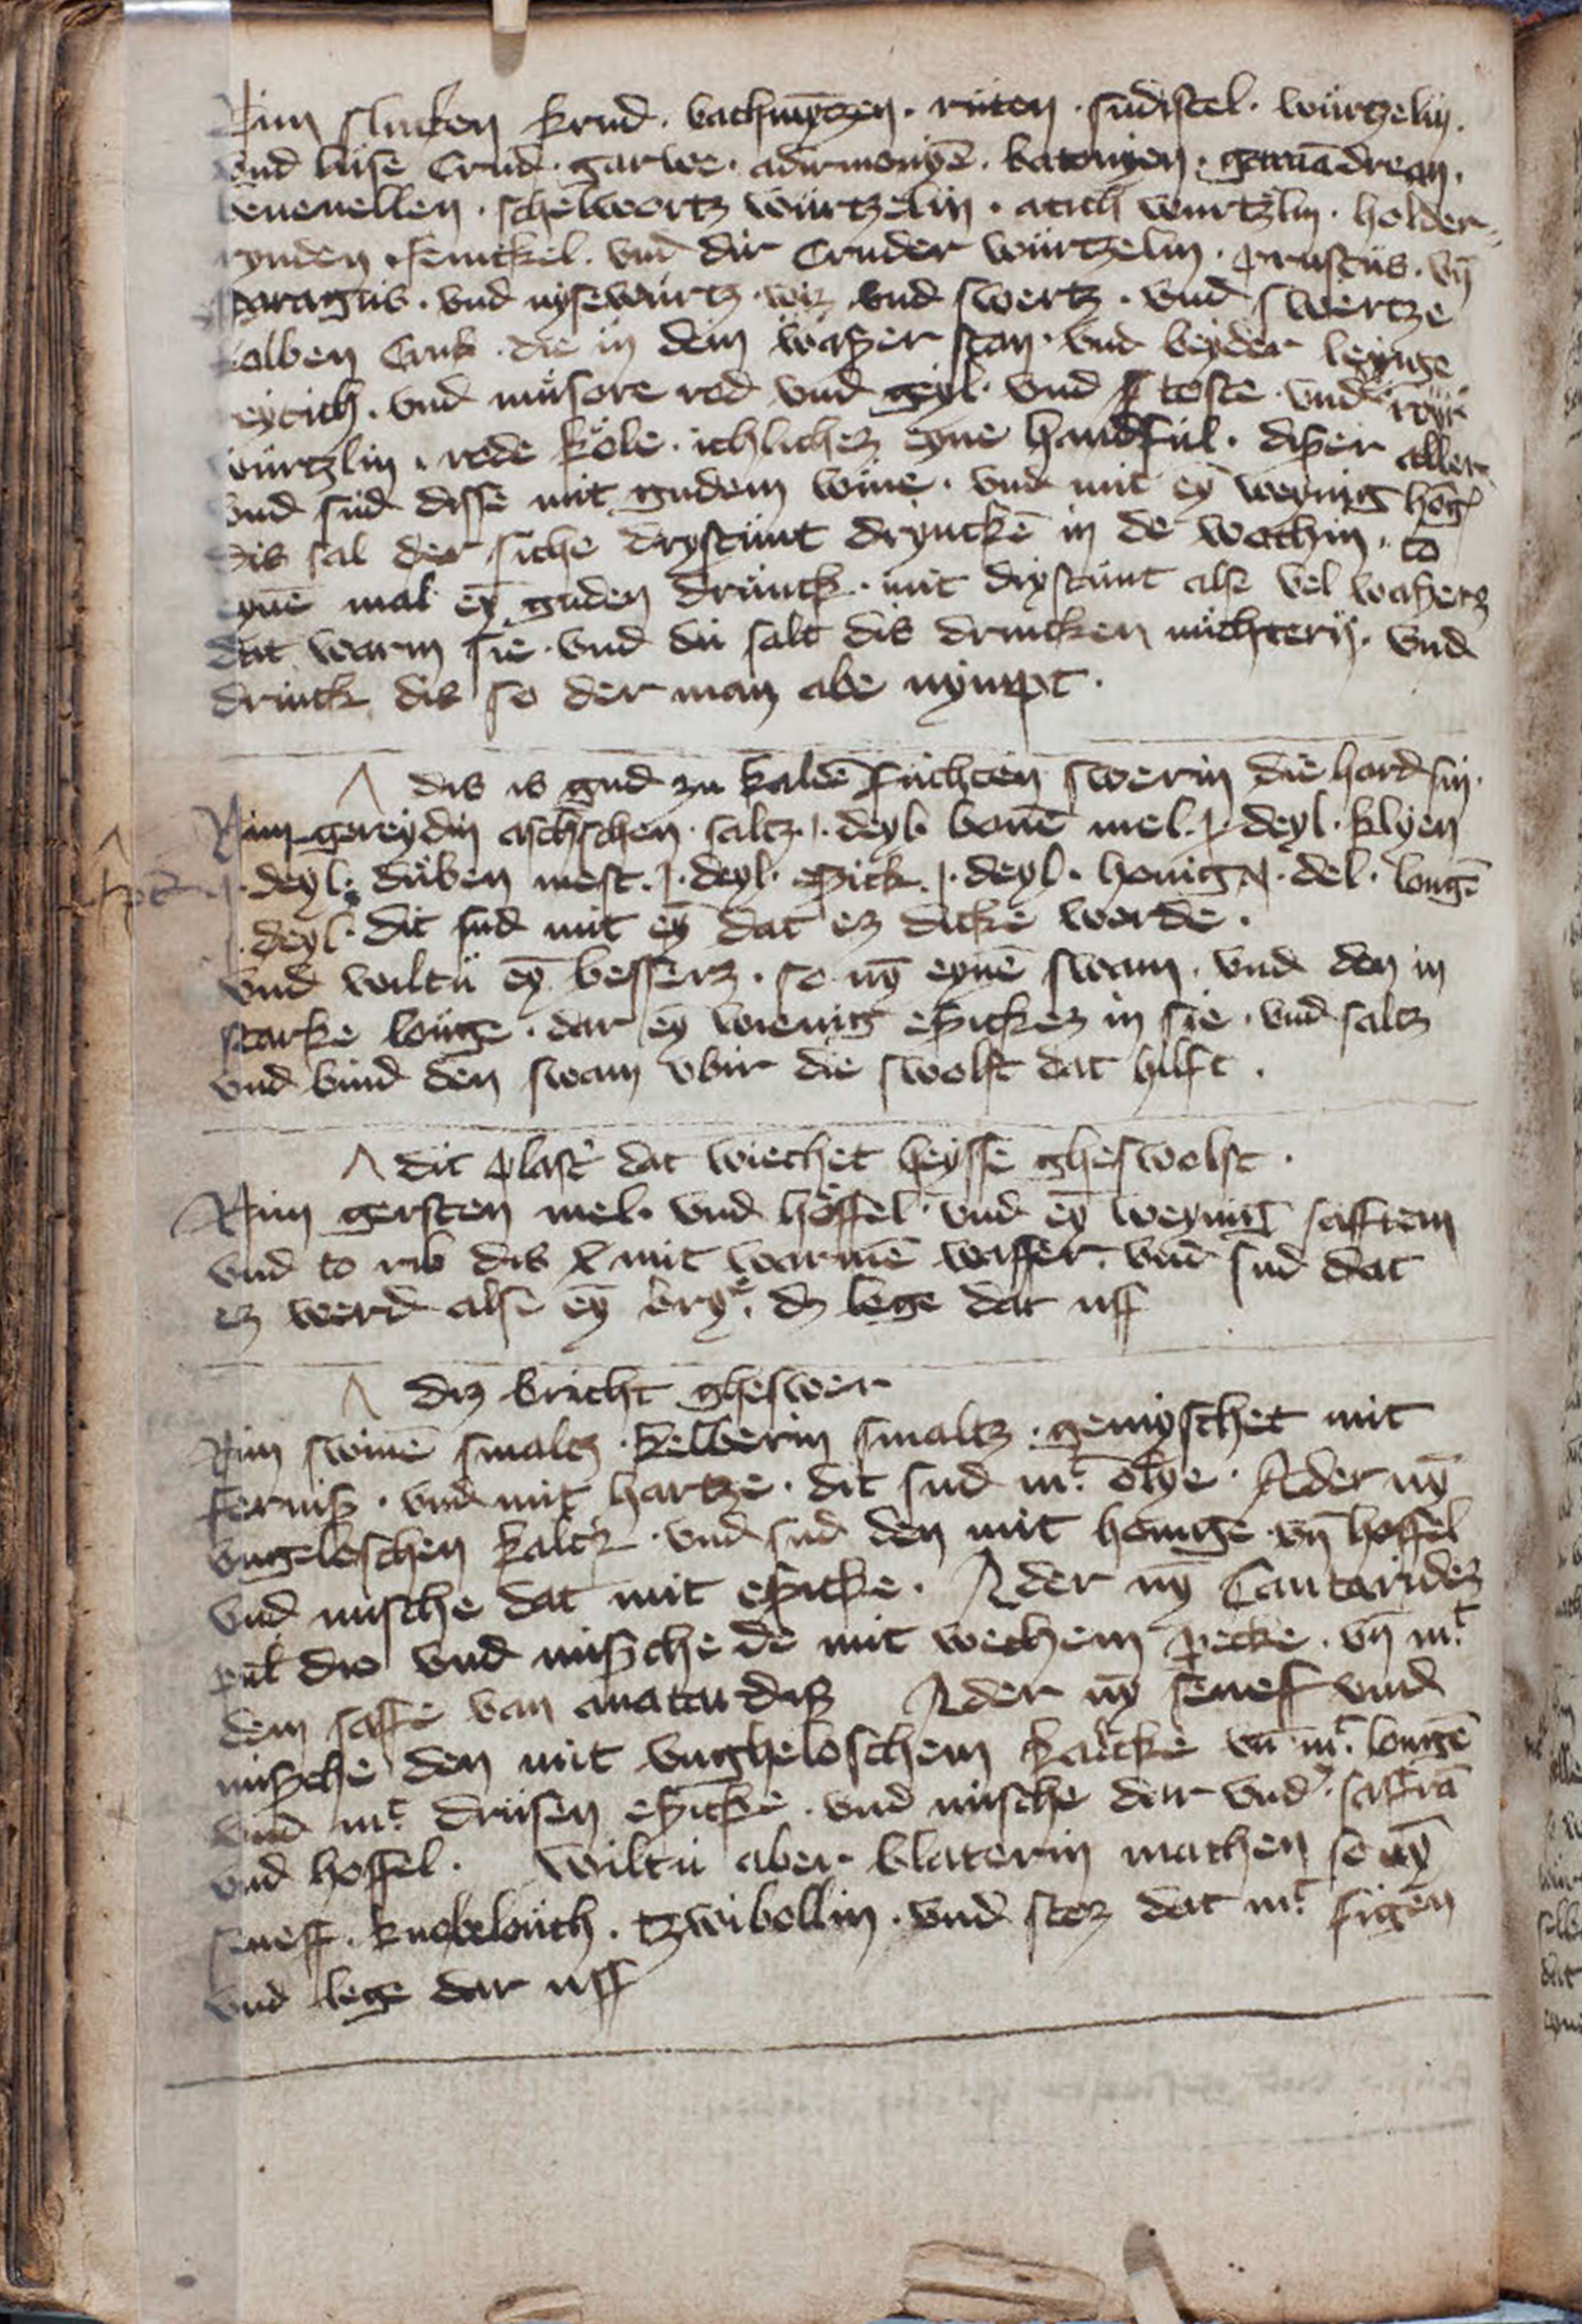 Nim slucken krud . bachmȳtzen . rüten . sudistel . würtzelin .
vnd lüse Crud . garwe . adirmonyē . batonyen . gamādrean .
beuenellen . schelwortz würtzelin . atich wurtzlin . holder
rynden . fenickel . vnd dir Cruder würtzelin . pruscus . vn̄
sparagus . vnd nysewurtz . wiz vnd swertz . vnd swertze
kolben Crud . die in dem waßer stan . vnd beyder leynge
eytich . vnd müsore rod vnd geyl . vnd toste . vnd
würtzlin . rode köle . ichliches eyne handful . dißer aller
vnd sud disse mit gudem wine . vnd mit eȳ weynig hōg
Dis sal der siche drystunt drynckē in de wochin . to
eynē mal eȳ guden drunck . mit drystunt alse vel waßers
dat warm sie . vnd du salt dis drincken nüchtern . vnd
drinck dis so der man abe nympt .
dis is gud zu kaldē füchten swerin die hard sin .
Nim gereydin aschschen . saltz . j . deyl . bonē mel . j . deyl . klyen
j . deyl . duben mest . j . deyl . epick . j . deyl . honig . j . del . longē
j . deyl . dit sud mit eȳ dat ez dicke werde .
vnd wiltü eȳ bessers . so nȳ eynē swam . vnd den in
starke louge . dar eȳ wienig epickes in sie . vnd saltz
vnd bind den swam vbir die swolst dat hilft .
dit plast' dat wiechet heysse gheswolst .
Nim gersten mel . vnd höffel . vnd eȳ weynig safftem
vnd to rib dis mit warmē wasser . vnd sud dat
ez werd alse eȳ bry . dz lege dat uff
diz bricht gheswer
Nim swinē smaltz . kelberin smaltz . gemyschet mit
ferniß . vnd mit hartze . dit sud mt ölye . Ader nȳ
vngeloschen kalck . vnd sud den mit honige vn̄ hoffel
vnd mische dat mit epicke . Ader nȳ Cantarides
pul die vnd mische de mit wechem pecke . vn̄ mt
dem saffe van Ader nȳ seneff vnd
mische den mit vngheloschem kalcke vn̄ mt longē
vnd mt drüsen epicke . vnd mische dar vnd' saffrā
vnd hoffel . Wiltu aber blaterin machen so nȳ
seneff . knobelouch . tzwibollin . vnd stoz dat mt figen
vnd lege dar uff